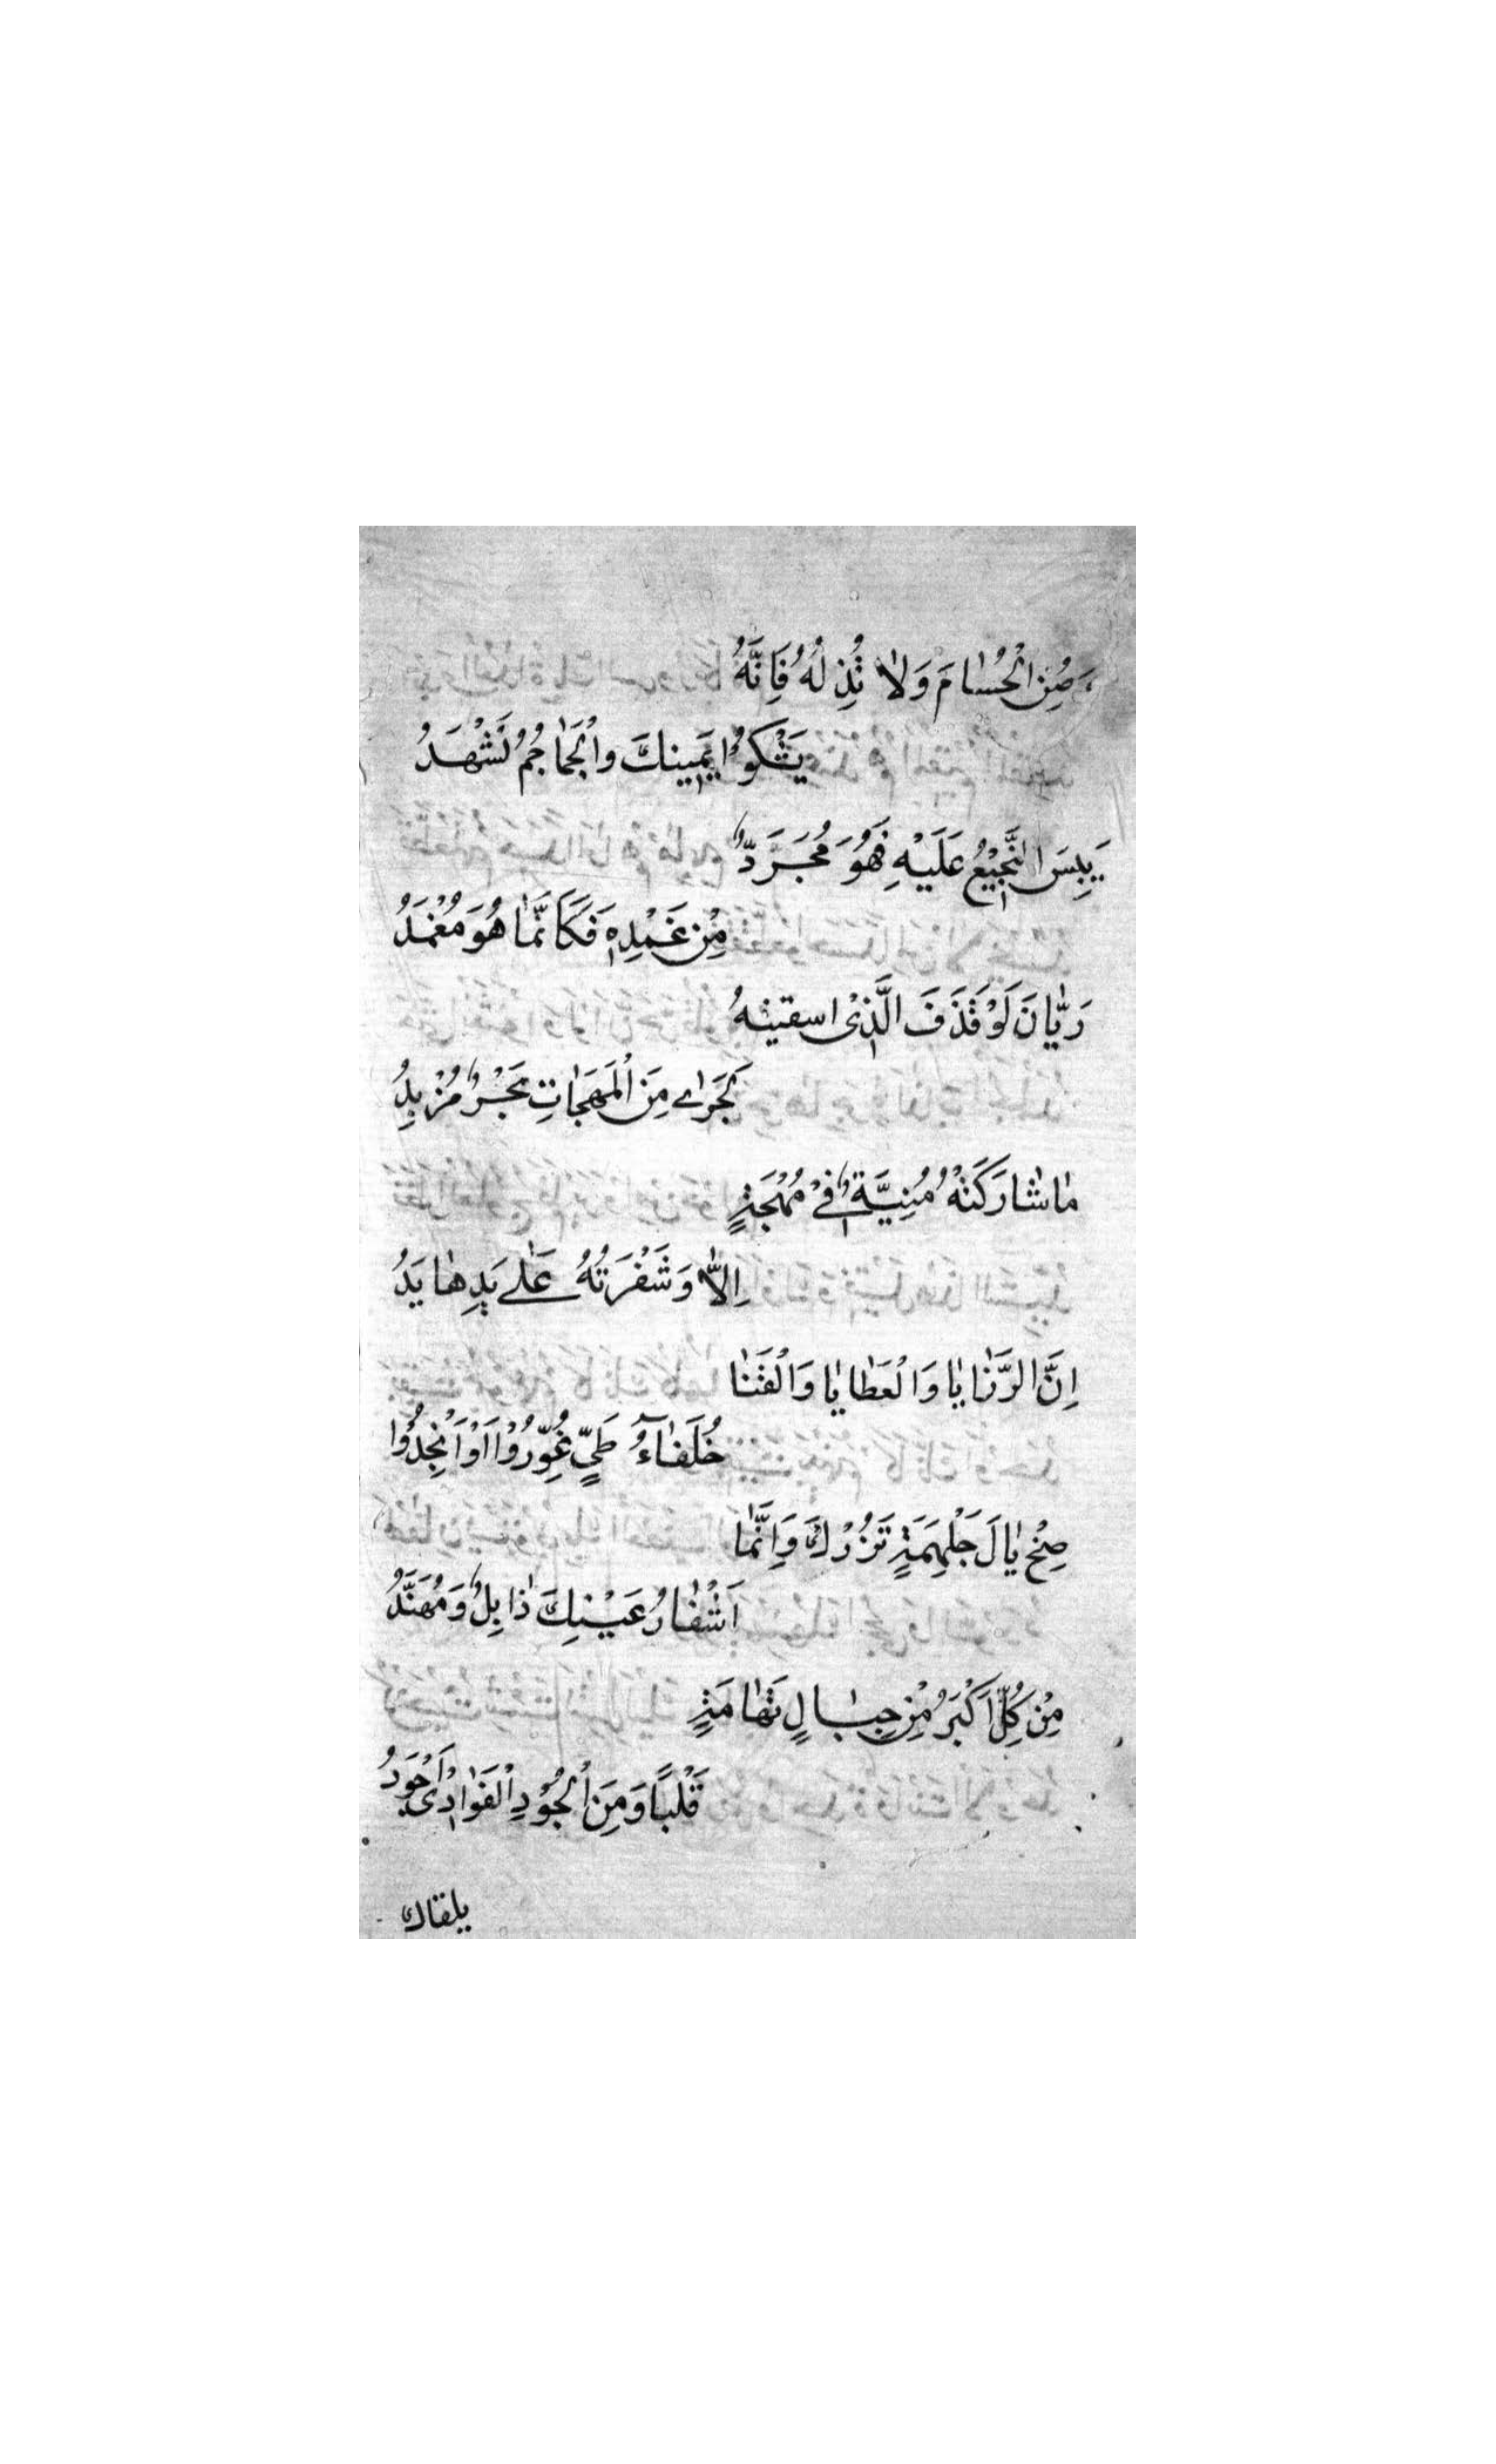 وَصُنِ الْحُسَامَ وَلاَ تُذِلْهُ فَاِنَّهُ
يَشْكُوْا يَمِينَكَ وَالْجَمَاجِمُ تَشْهَدُ
يَبِسَ النَّجِيْعُ عَلَيْهِ فَهُوَ مُجَرَّدٌ
مِنْ غَمْدِهِ فَكَاَنَّمَا هُوَ مُغْمَدُ
رَيَّانَ لَوْ قَذَفَ الَّذِىْ اسقيته
لَجَرَاے مِنَ الْمَهَجَاتِ بَحْرٌ مُزْبِدُ
مَا شَارَكَتْهُ مُنِيَّةٌ فِىْ مُهْجَةٍ
اِلاَّ وَشَفْرَتُهُ عَلٰے يَدِهَا يَدُ
اِنَّ الرَّزَايَا وَالْعَطَايَا وَالْقَنَا
خُلَفَآءُ طَىٍّ غُوِّرُوْا اَوْ اَنْجِدُوْا
صِحْ يَالَ جَلْهِمَةٍ تَزُرْكَ وَاِنَّمَا
اَشْفَارُ عَيْنِكَ ذَابِلٌ وَمُهَنَّدُ
مِنْ كُلِّ اَكْبَرُ مِنْ جِبَالٍ تَهَامَةٍ
قَلْبًا وَمِنَ الْجُوْدِ الْغَوَادِىْ اَجْوَدُ
يلقاك